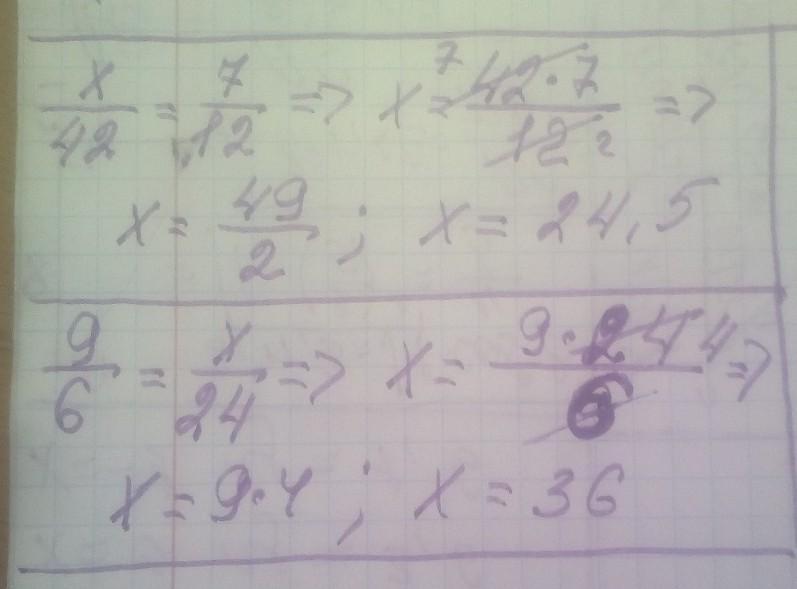 x/42 = 7/12 => x = 42·7/12 => 7 2
x = 49/2 ; x = 24,5
9/6 = x/24 => x = 9·24/6 4 =>
x = 9·4 ; x = 36